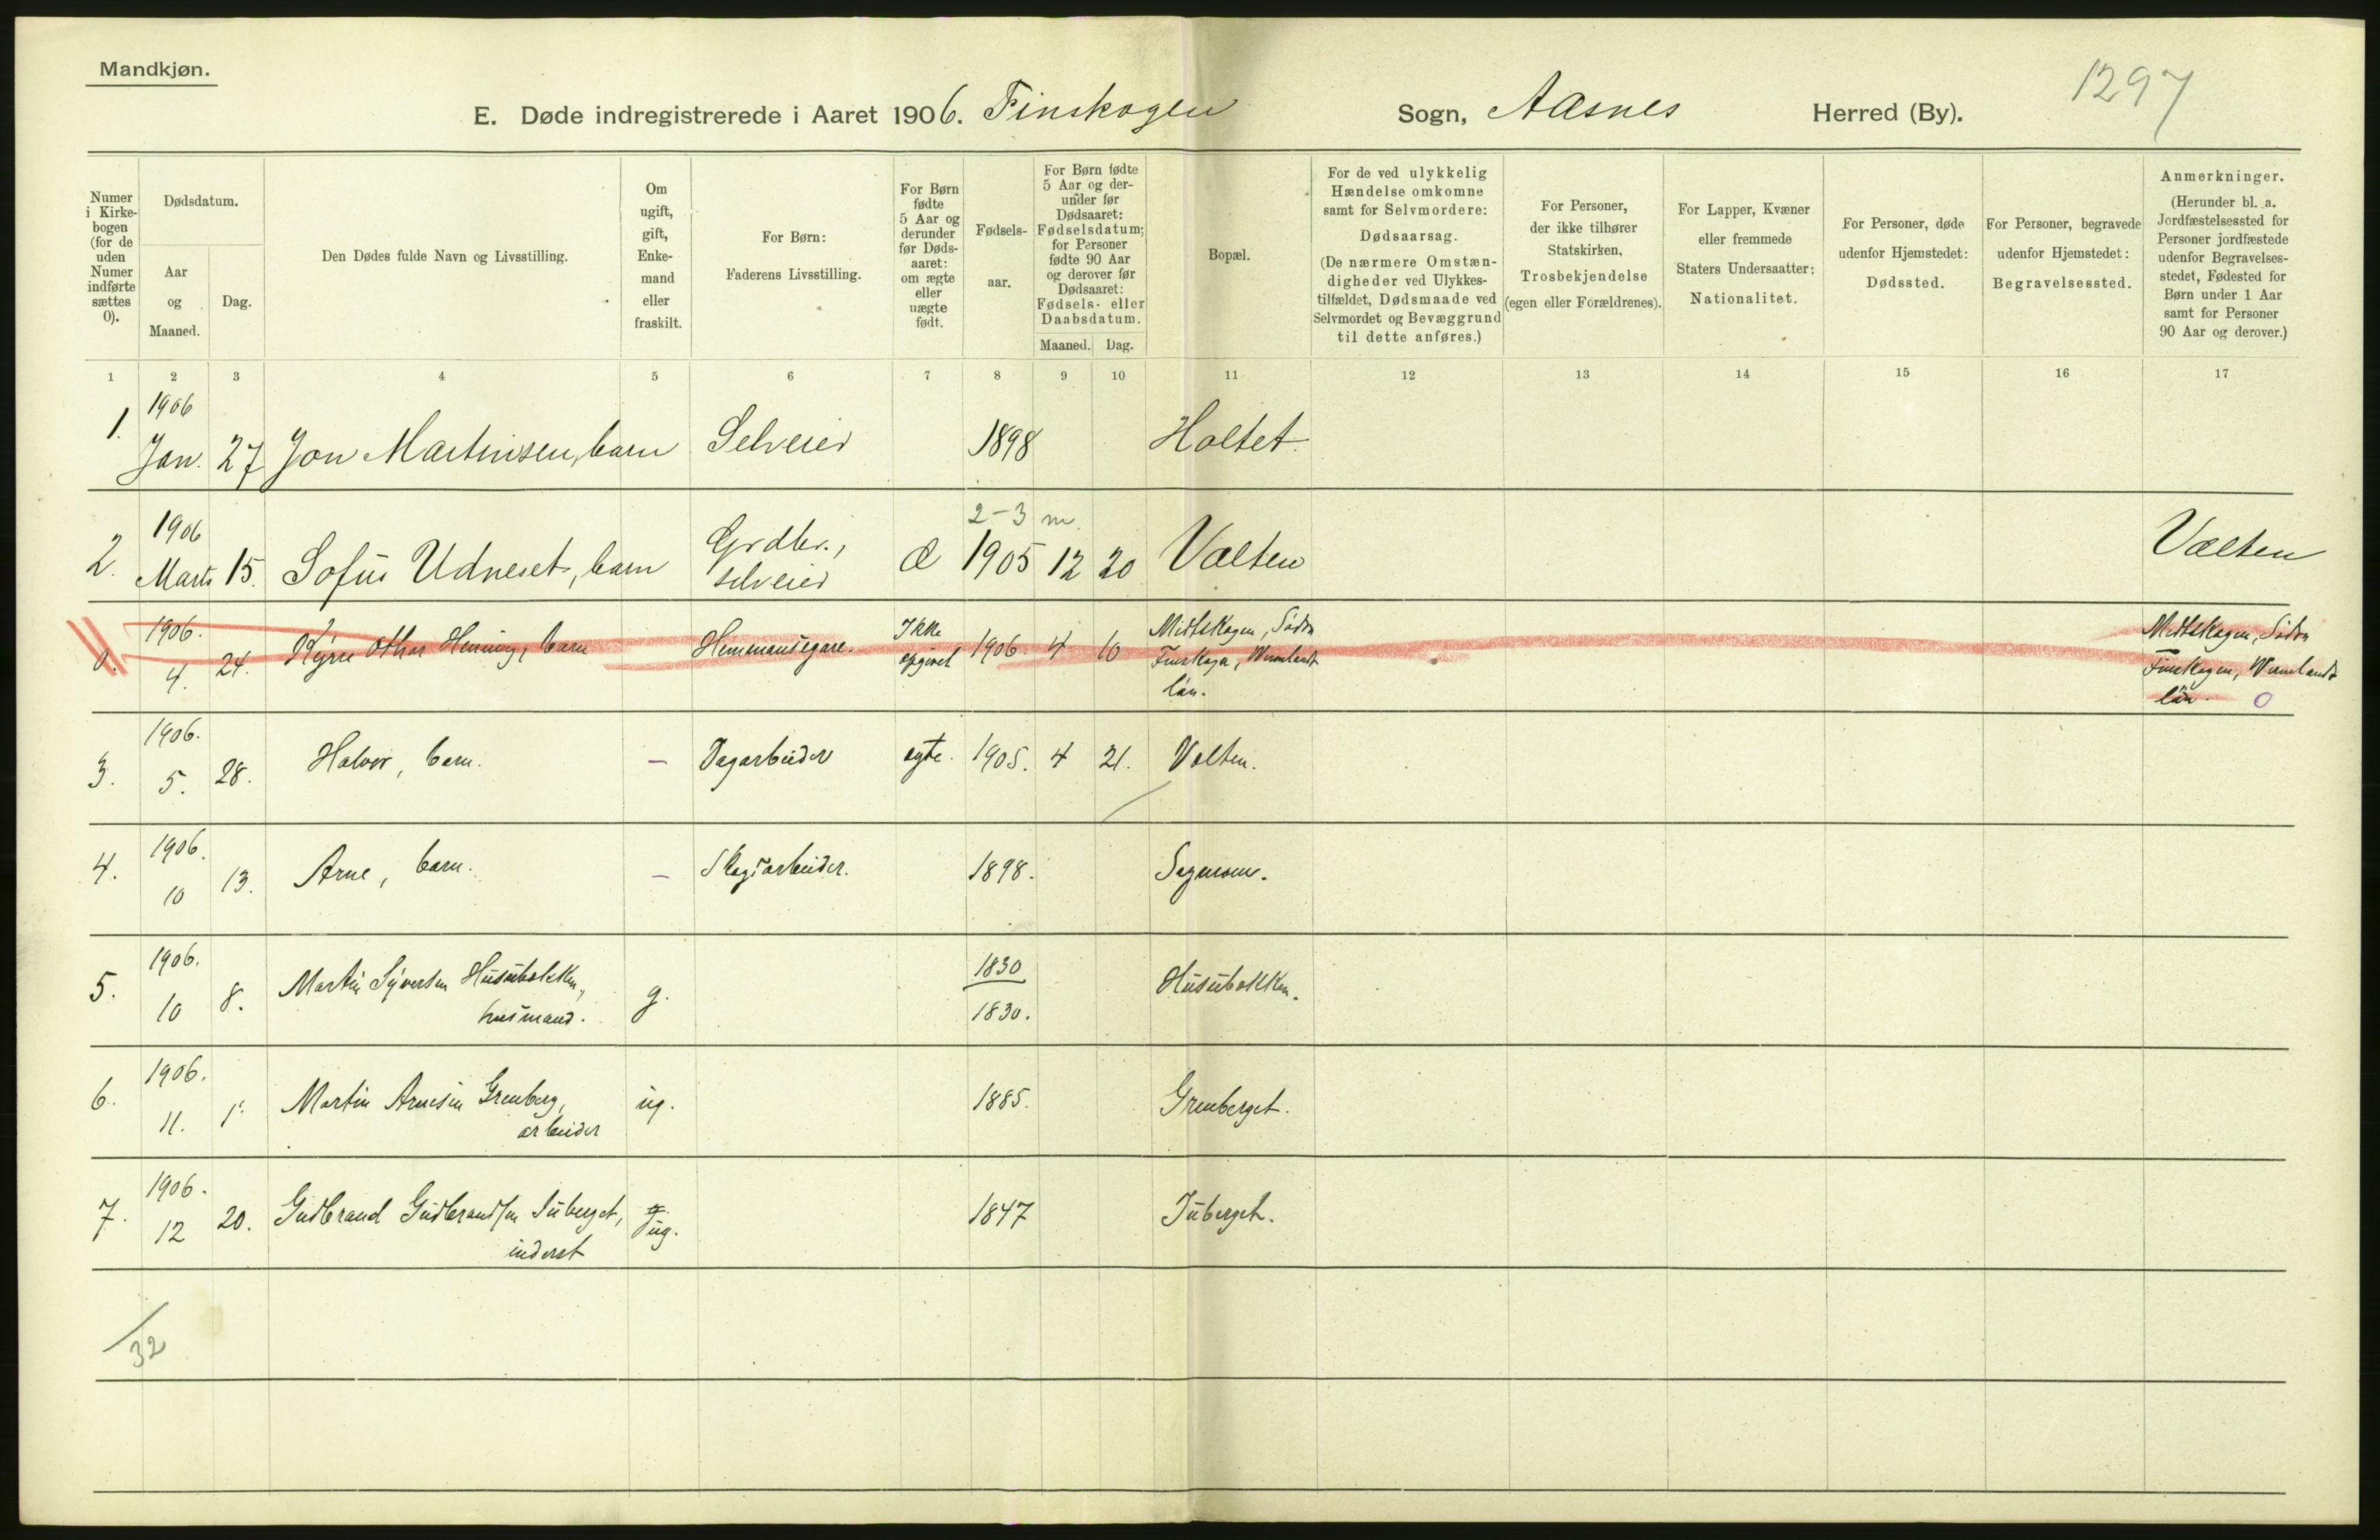 Mandkjøn.
1297
E. Døde indregistrerede i Aaret 1906. Finskogen Sogn, Aasnes Herred (By).
Numer
i Kirke-
bogen
(for de
uden
Numer
indførte
sættes
0).
Dødsdatum.
Aar
og
Maaned.
Dag.
Den Dødes fulde Navn og Livsstilling.
Om
ugift,
gift,
Enke-
mand
eller
fraskilt.
For Børn:
Faderens Livsstilling.
For Børn
fødte
5 Aar og
derunder
før Døds-
aaret:
om ægte
eller
uægte
født.
Fødsels-
aar.
For Børn fødte
5 Aar og der-
under før
Dødsaaret:
Fødselsdatum;
for Personer
fødte 90 Aar
og derover før
Dødsaaret:
Fødsels- eller
Daabsdatum.
Maaned. Dag.
Bopæl.
For de ved ulykkelig
Hændelse omkomne
samt for Selvmordere:
Dødsaarsag.
(De nærmere Omstæn-
digheder ved Ulykkes-
tilfældet, Dødsmaade ved
Selvmordet og Bevæggrund
til dette anføres.)
For Personer,
der ikke tilhører
Statskirken,
Trosbekjendelse
(egen eller Forældrenes).
For Lapper, Kvæner
eller fremmede
Staters Undersaatter:
Nationalitet.
For Personer, døde
udenfor Hjemstedet:
Dødssted.
For Personer, begravede
udenfor Hjemstedet:
Begravelsessted.
Anmerkninger.
(Herunder bl. a.
Jordfæstelsessted for
Personer jordfæstede
udenfor Begravelses-
stedet, Fødested for
Børn under 1 Aar
samt for Personer
90 Aar og derover.)
1 2 3 4 5 6 7 8 9 10 11 12 13 14 15 16 17
1906
1. Jan. 27 Jon Martinsen, barn Selveier 1898 Holtet.
1906 2-3 m.
Grdbr.,
2. Marts 15. Sofus Udneset, barn selveier æ 1905 12 20 Valten Vælten
1906. Ikke Midtskogen, Södra Midtskogen, Södra
0. 4. 24. Othar Henning, barn Hemmansegare. opgivet 1906. 4 10 Finskoga, Wermlands Finskogen, Wermlands
län. län. 0
1906.
3. 5. 28. Halvor, barn. - Dagarbeider egte. 1905. 4 21. Valten.
1906.
4. 10 13. Arne, barn. - Skogsarbeider. 1898.
1906. 1830
5. 10 8. Martin Syversen Husubakken, g. 1830. Husubakken.
husmand.
1906.
6. 11. 1. Martin Arnesen Grenberg, ug. 1885. Grenberget.
arbeider
1906.
7. 12 20. Gudbrand Gudbrandsen Juberget, ug. 1847 Juberget.
inderst
32